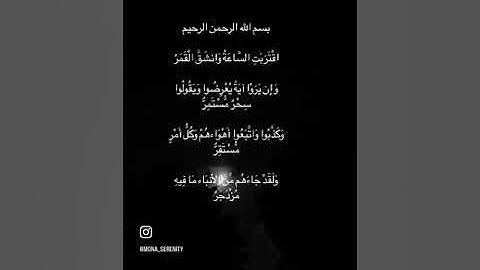 بسم الله الرحمن الرحيم
اقْتَرَبَتِ السَّاعَةُ وَانشَقَّ الْقَمَرُ
وَإِن يَرَوْا آيَةً يُعْرِضُوا وَيَقُولُوا
سِحْرٌ مُّسْتَمِرٌّ
وَكَذَّبُوا وَاتَّبَعُوا أَهْوَاءَهُمْ وَكُلُّ أَمْرٍ
مُّسْتَقِرٌّ
وَلَقَدْ جَاءَهُم مِّنَ الْأَنبَاءِ مَا فِيهِ
مُزْدَجَرٌ
@MONA_SERENITY